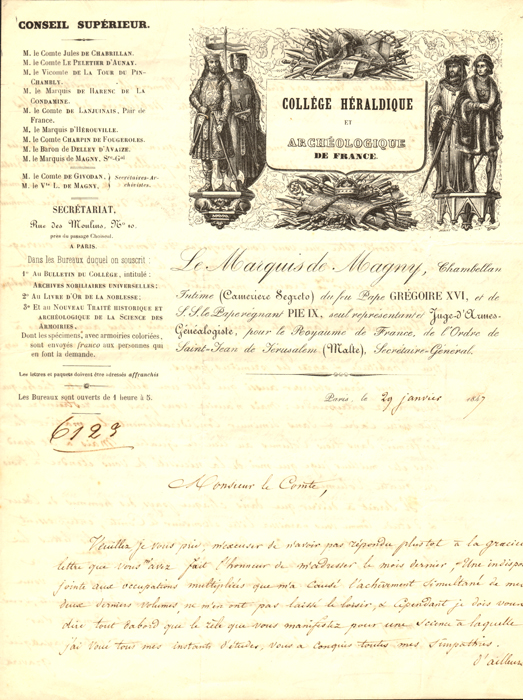 CONSEIL SUPÉRIEUR.
M. le Comte Jules de Chabrillan.
M. le Comte Le Peletier d'Aunay.
M. le Vicomte de La Tour du Pin-
Chambly.
M. le Marquis de Harenc de La
Condamine.
M. le Comte de Lanjuinais, Pair de
France.
M. le Marquis d'Hérouville.
M. le Comte Charpin de Fougeroles.
M. le Baron de Delley d'Avaize.
M. le Marquis de Magny, Sre-Gal
M. le Comte de Givodan, } Secrétaires-Ar-
M. le Vte L. de Magny, } chivistes.
SECRÉTARIAT,
Rue des Moulins, No 10.
près du passage Choiseul,
A PARIS.
Dans les Bureaux duquel on souscrit :
1o Au Bulletin du Collège, intitulé :
Archives nobiliaires universelles;
2o Au Livre d'Or de la noblesse;
3o Et au Nouveau Traité historique et
archéologique de la Science des
Armoiries.
Dont les spécimens, avec armoiries coloriées,
sont envoyés franco aux personnes qui
en font la demande.
Les lettres et paquets doivent être adressés affranchis
Les Bureaux sont ouverts de 1 heure à 5.
6123
COLLÉGE HÉRALDIQUE
ET
ARCHÉOLOGIQUE
DE FRANCE.
Le Marquis de Magny, Chambellan
Intime (Cameriere Segreto) du feu Pape GRÉGOIRE XVI, et de
S. S. le Pape régnant PIE IX, seul représentant et Juge-d'Armes-
Généalogiste, pour le Royaume de France, de l'Ordre de
Saint-Jean de Jérusalem (Malte), Secrétaire-Général.
Paris, le 29 janvier 1847
Monsieur le Comte,
Veuillez je vous prie m'excuser de n'avoir pas répondu plustot à la gracieuse
lettre que vous m'avez fait l'honneur de m'adresser le mois dernier. Une indispo
jointe aux occupations multipliées que m'a causé l'achivement simultané de mes
deux derniers volumes, ne m'en ont pas laissé le loisir, & cependant je dois vous
dire tout d'abord que le zèle que vous manifestez pour une science à laquelle
j'ai voué tous mes instants d'études, vous a conquis toutes mes simpathies.
D'ailleurs